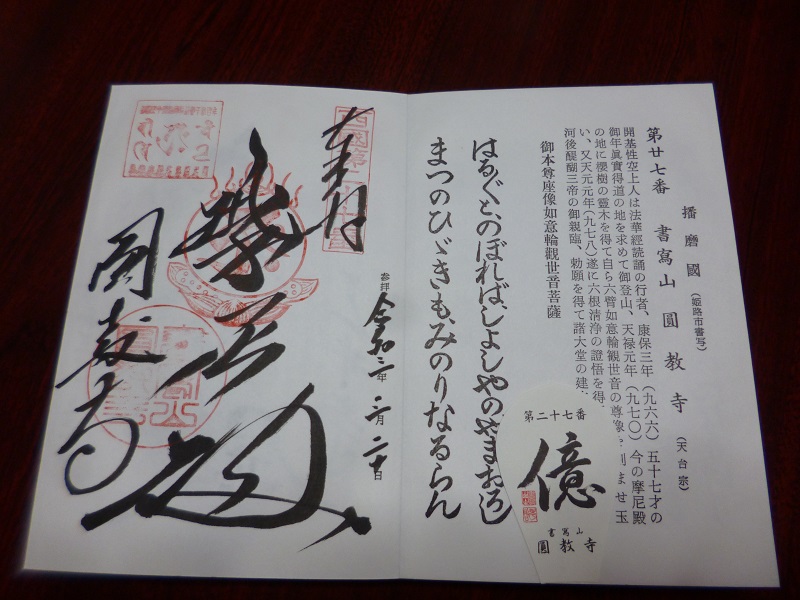 播磨國(姫路市書写)
第廿七番 書寫山圓教寺(天台宗)
開基性空上人は法華經読誦の行者、康保三年(九六六)五十七才の
御年眞實得道の地を求めて御登山、天禄元年(九七〇)今の摩尼殿
の地に櫻樹の靈木を得て自ら六臂如意輪觀世音の尊像を刻ませ玉
い、又天元元年(九七八)遂に六根清浄の證悟を得
河後醍醐三帝の御親臨、勅願を得て諸大堂の建
御本尊座像如意輪觀世音菩薩
はるばると、のぼれば、しよしやのやまおろし
まつのひゞきも、みのりなるらん
第二十七番
億
書寫山
圓教寺
奉拝
参拝 令和三年 二月 二十日
圓教寺